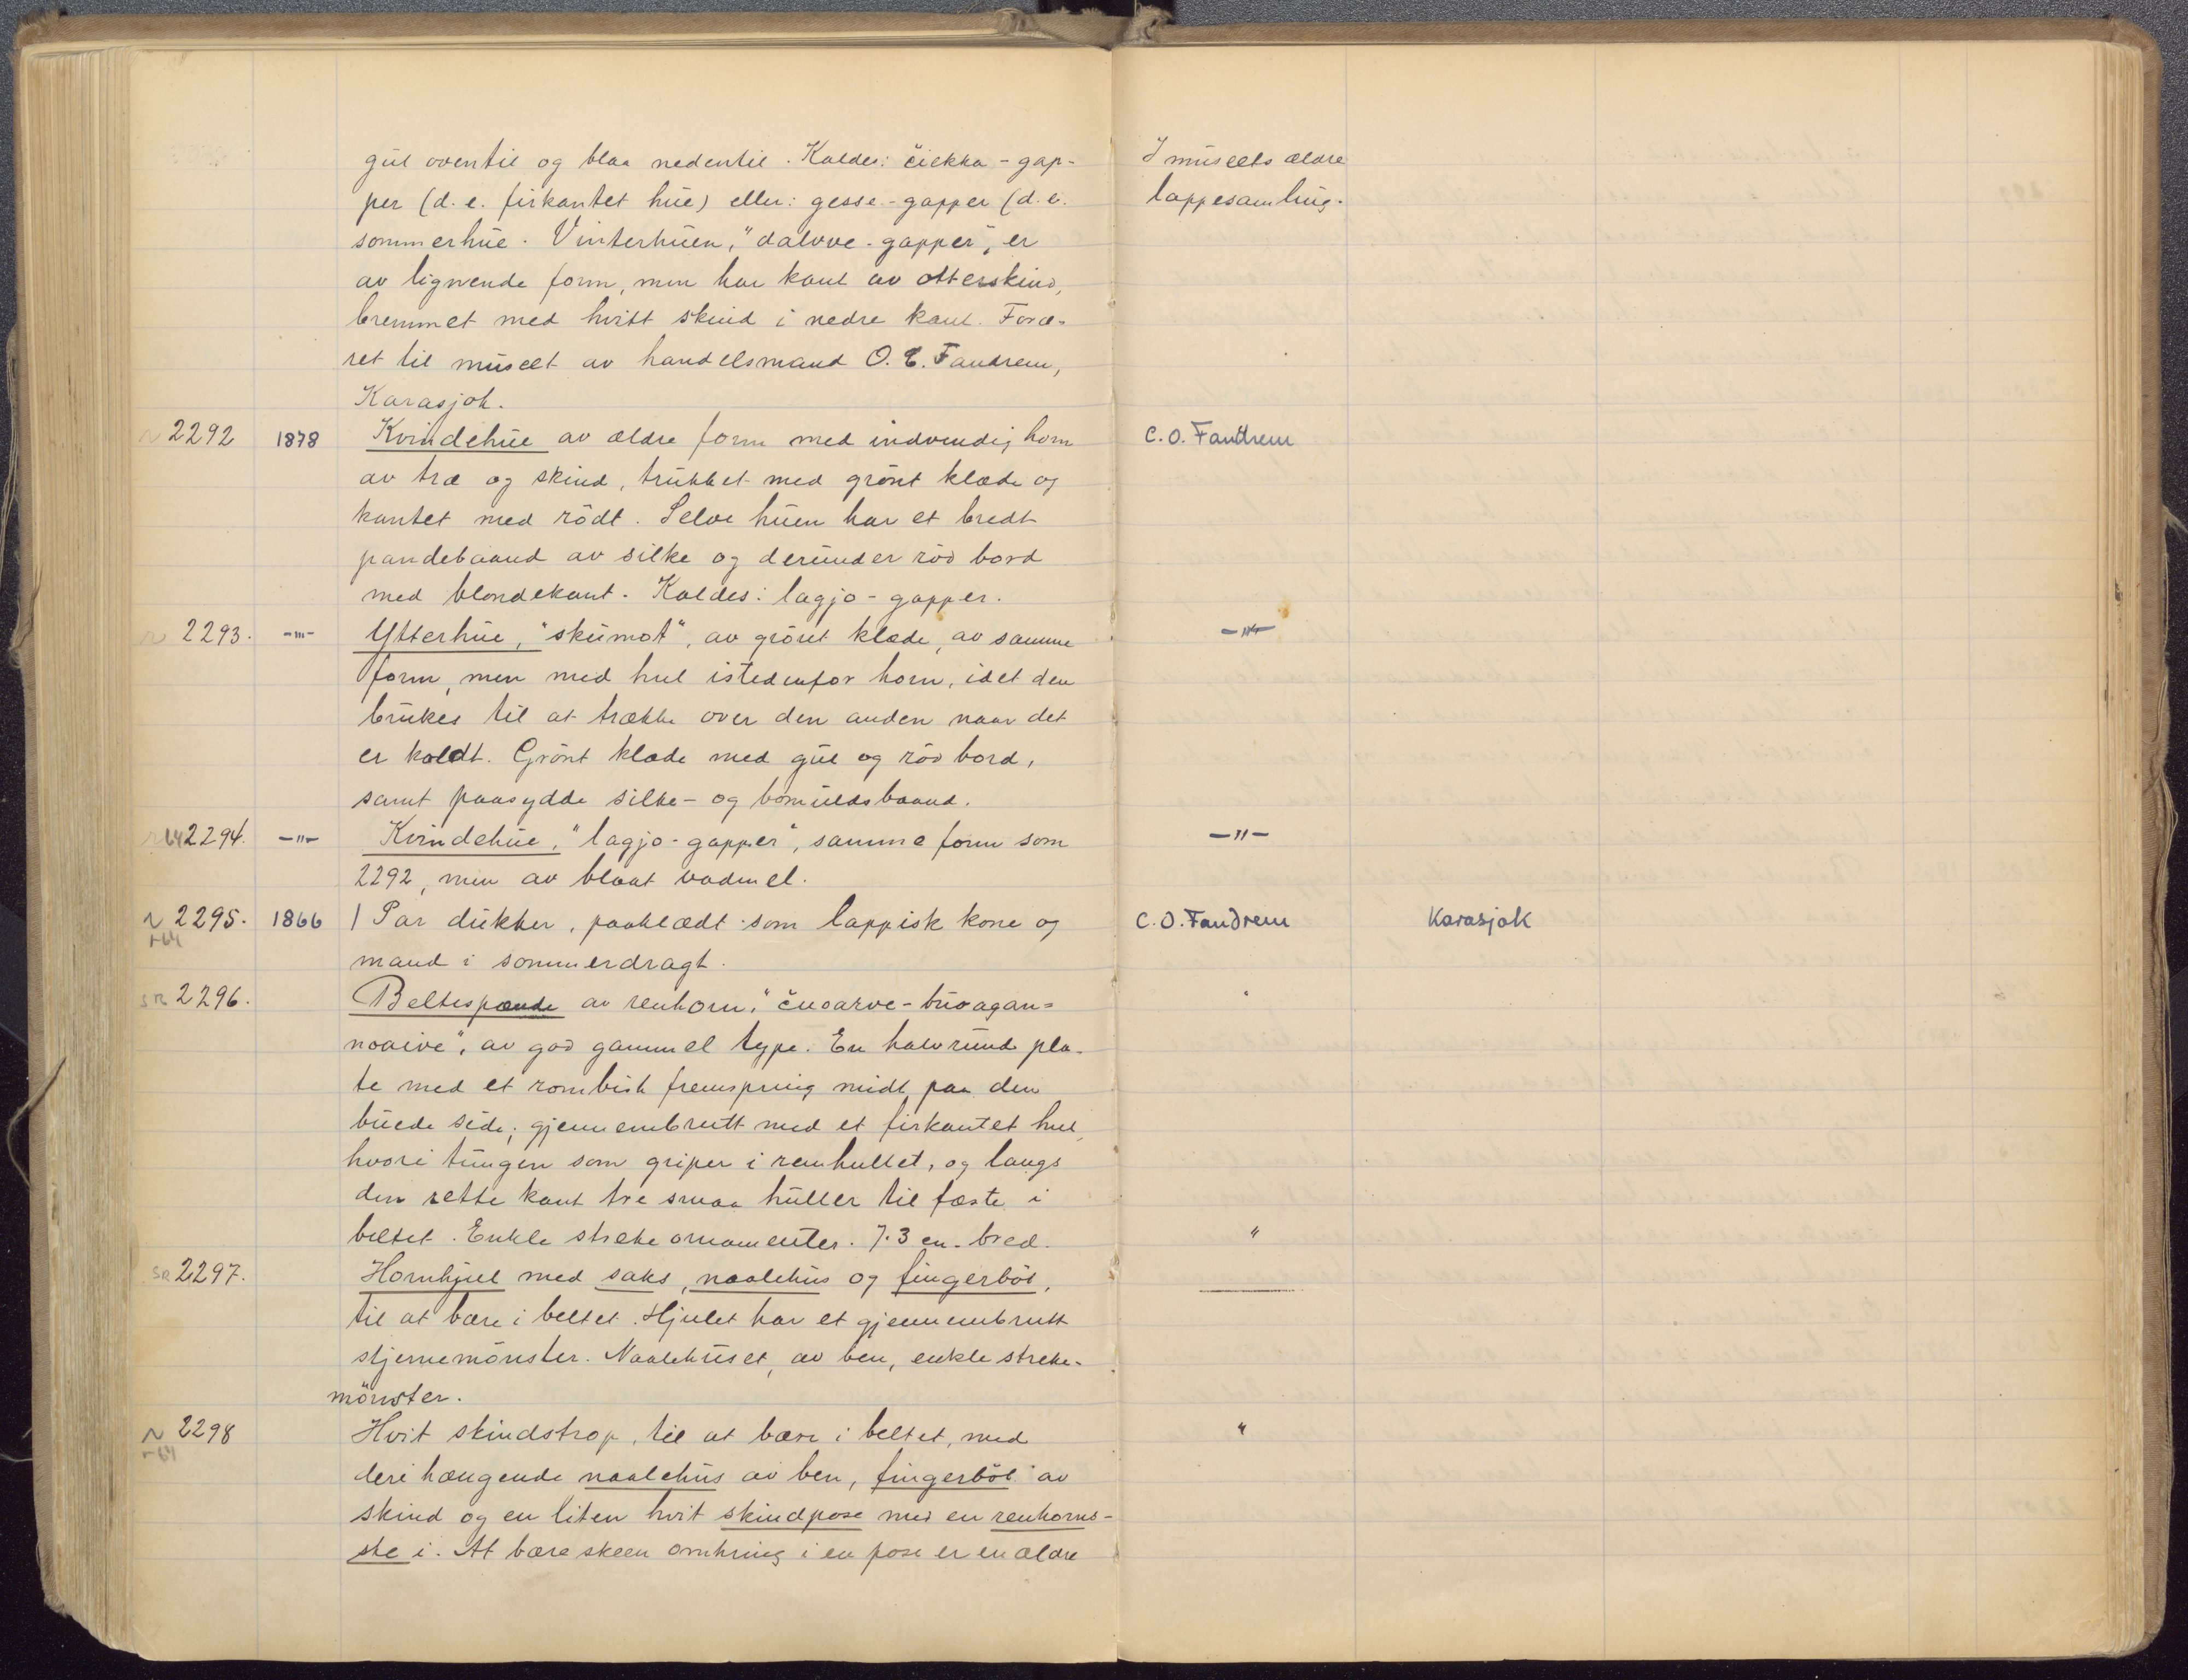 gul oventil og blaa nedentil. Kaldes: čiekka-gap-
per (d.e. firkantet hue) eller: gesse-gapper (d.e.
sommerhue. Vinterhuen, "dalvve-gapper", er
av lignende form, men har kant av otterskind,
bremmet med hvitt skind i nedre kant. Foræ-
ret til museet av handelsmand O. C. Fandrem,
Karasjok.
I museets ældre
lappesamling.
2292 1878 Kvindehue av ældre form med indvendig horn C. O. Fandrem
av træ og skind, trukket med grönt klæde og
kantet med rödt. Selve huen har et bredt
pandebaand av silke og derunder röd bord
med blondekant. Kaldes: lagjo-gapper.
2293. -"- Ytterhue, "skumot", av grönt klæde, av samme -"-
form, men med hul istedenfor horn, idet den
brukes til at trække over den anden naar det
er koldt. Grönt klæde med gul og röd bord,
samt paasydde silke- og bomuldsbaand.
2294. -"- Kvindehue, "lagjo-gapper", samme form som -"-
2292, men av blaat vadmel.
N 2295. 1866 1 Par dukker, paaklædt som lappisk kone og C. O. Fandrem Karasjok
mand i sommerdragt.
SR 2296. Beltespænde av renhorn, "čuoarve-buoagan=
noaive", av god gammel type. En halvrund pla-
te med et rombisk fremspring midt paa den
buede side, gjennembrutt med et firkantet hul,
hvori tungen som griper i remhullet, og langs
den rette kant tre smaa huller til fæste i
beltet. Enkle streke ornamenter. 7.3 cm. bred. "
SR 2297. Hornhjul med saks, naalehus og fingerböl,
til at bære i beltet. Hjulet har et gjennembrutt
stjernemönster. Naalehuset, av ben, enkle streke-
mönster.
N 2298 Hvit skindstrop, til at bære i beltet, med "
deri hængende naalehus av ben, fingerböl av
skind og en liten hvit skindpose med en renhorns-
ske i. At bære skeen omkring i en pose er en ældre